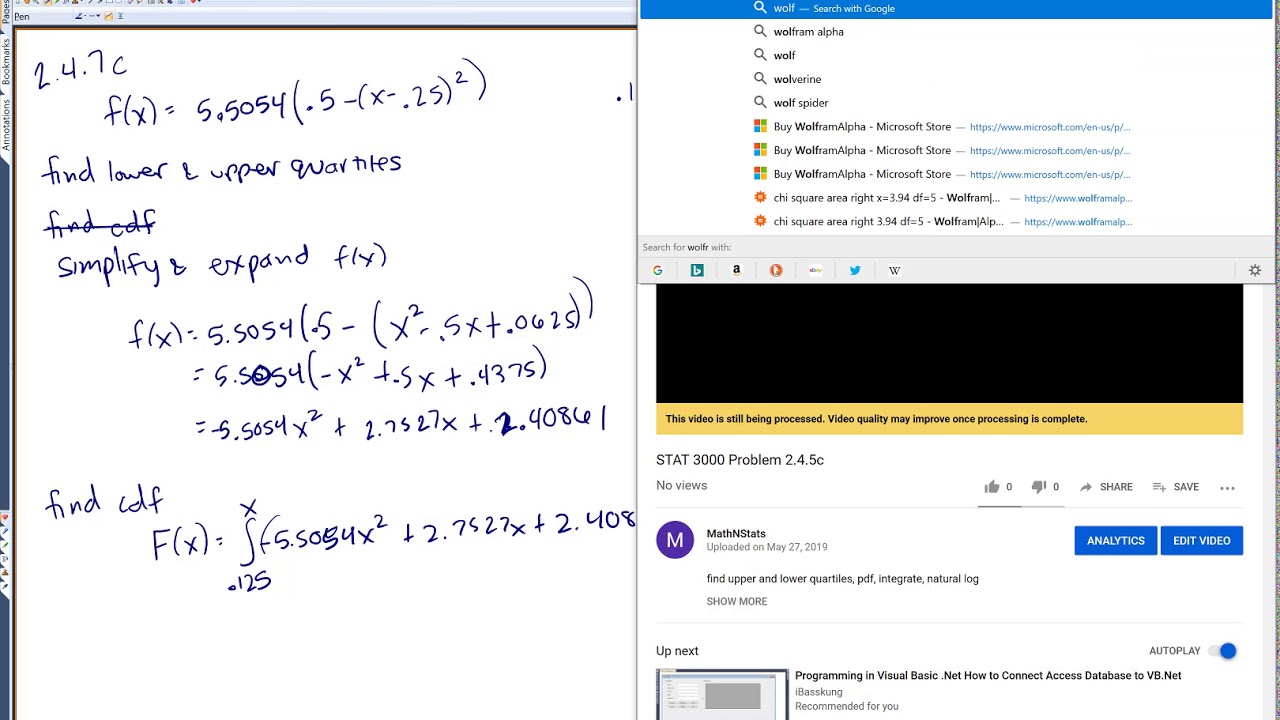 Pen
Pages
Bookmarks
Annotations
2.4.7c
f(x) = 5.5054(.5-(x-.25)²)
.1
find lower & upper quartiles
find cdf
simplify & expand f(x)
f(x) = 5.5054(.5 - (x² - .5x + .0625))
= 5.5054(-x² + .5x + .4375)
= -5.5054x² + 2.7527x + 2.40861
find cdf
F(x) = ∫ x .125 (-5.5054x² + 2.7527x + 2.408
wolf — Search with Google
wolfram alpha
wolf
wolverine
wolf spider
Buy WolframAlpha - Microsoft Store — https://www.microsoft.com/en-us/p/...
Buy WolframAlpha - Microsoft Store — https://www.microsoft.com/en-us/p/...
Buy WolframAlpha - Microsoft Store — https://www.microsoft.com/en-us/p/...
chi square area right x=3.94 df=5 - Wolfram|... — https://www.wolframalp...
chi square area right 3.94 df=5 - Wolfram|Alp... — https://www.wolframalp...
Search for wolfr with:
G
b
a
ebay
W
This video is still being processed. Video quality may improve once processing is complete.
STAT 3000 Problem 2.4.5c
No views
0
0
SHARE
SAVE
...
M
MathNStats
Uploaded on May 27, 2019
ANALYTICS
EDIT VIDEO
find upper and lower quartiles, pdf, integrate, natural log
SHOW MORE
Up next
AUTOPLAY
Programming in Visual Basic .Net How to Connect Access Database to VB.Net
iBasskung
Recommended for you